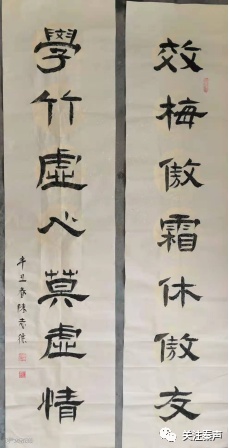 效梅傲霜休傲友
學竹虛心莫虛情
辛丑春
关注秦声